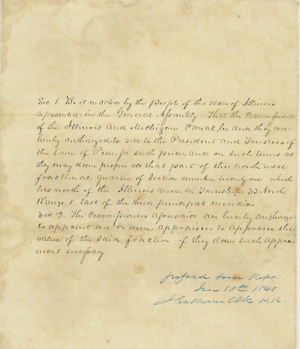 Sec 1 Be it enacted by the People of the State of Illinois
represented in the General Assembly That the Commissioners
of the Illinois and Michigan Canal, be and they are
hereby authorized to sell to the President and Trustees of
the town of for such price, and on such terms as
they may deem proper all that part of the north west
fractional quarter of Section number twenty one which
lies north of the Illinois river in Township 33 North
Range 1 East of the third principal meridian
Sec 2. The Commissioners aforesaid are hereby authorized
to appoint an or more appraisers to appraise the
value of the said fraction if they deem such appraise
ment necessary
passed House Reps.
Jan 1840
Clk H.R.